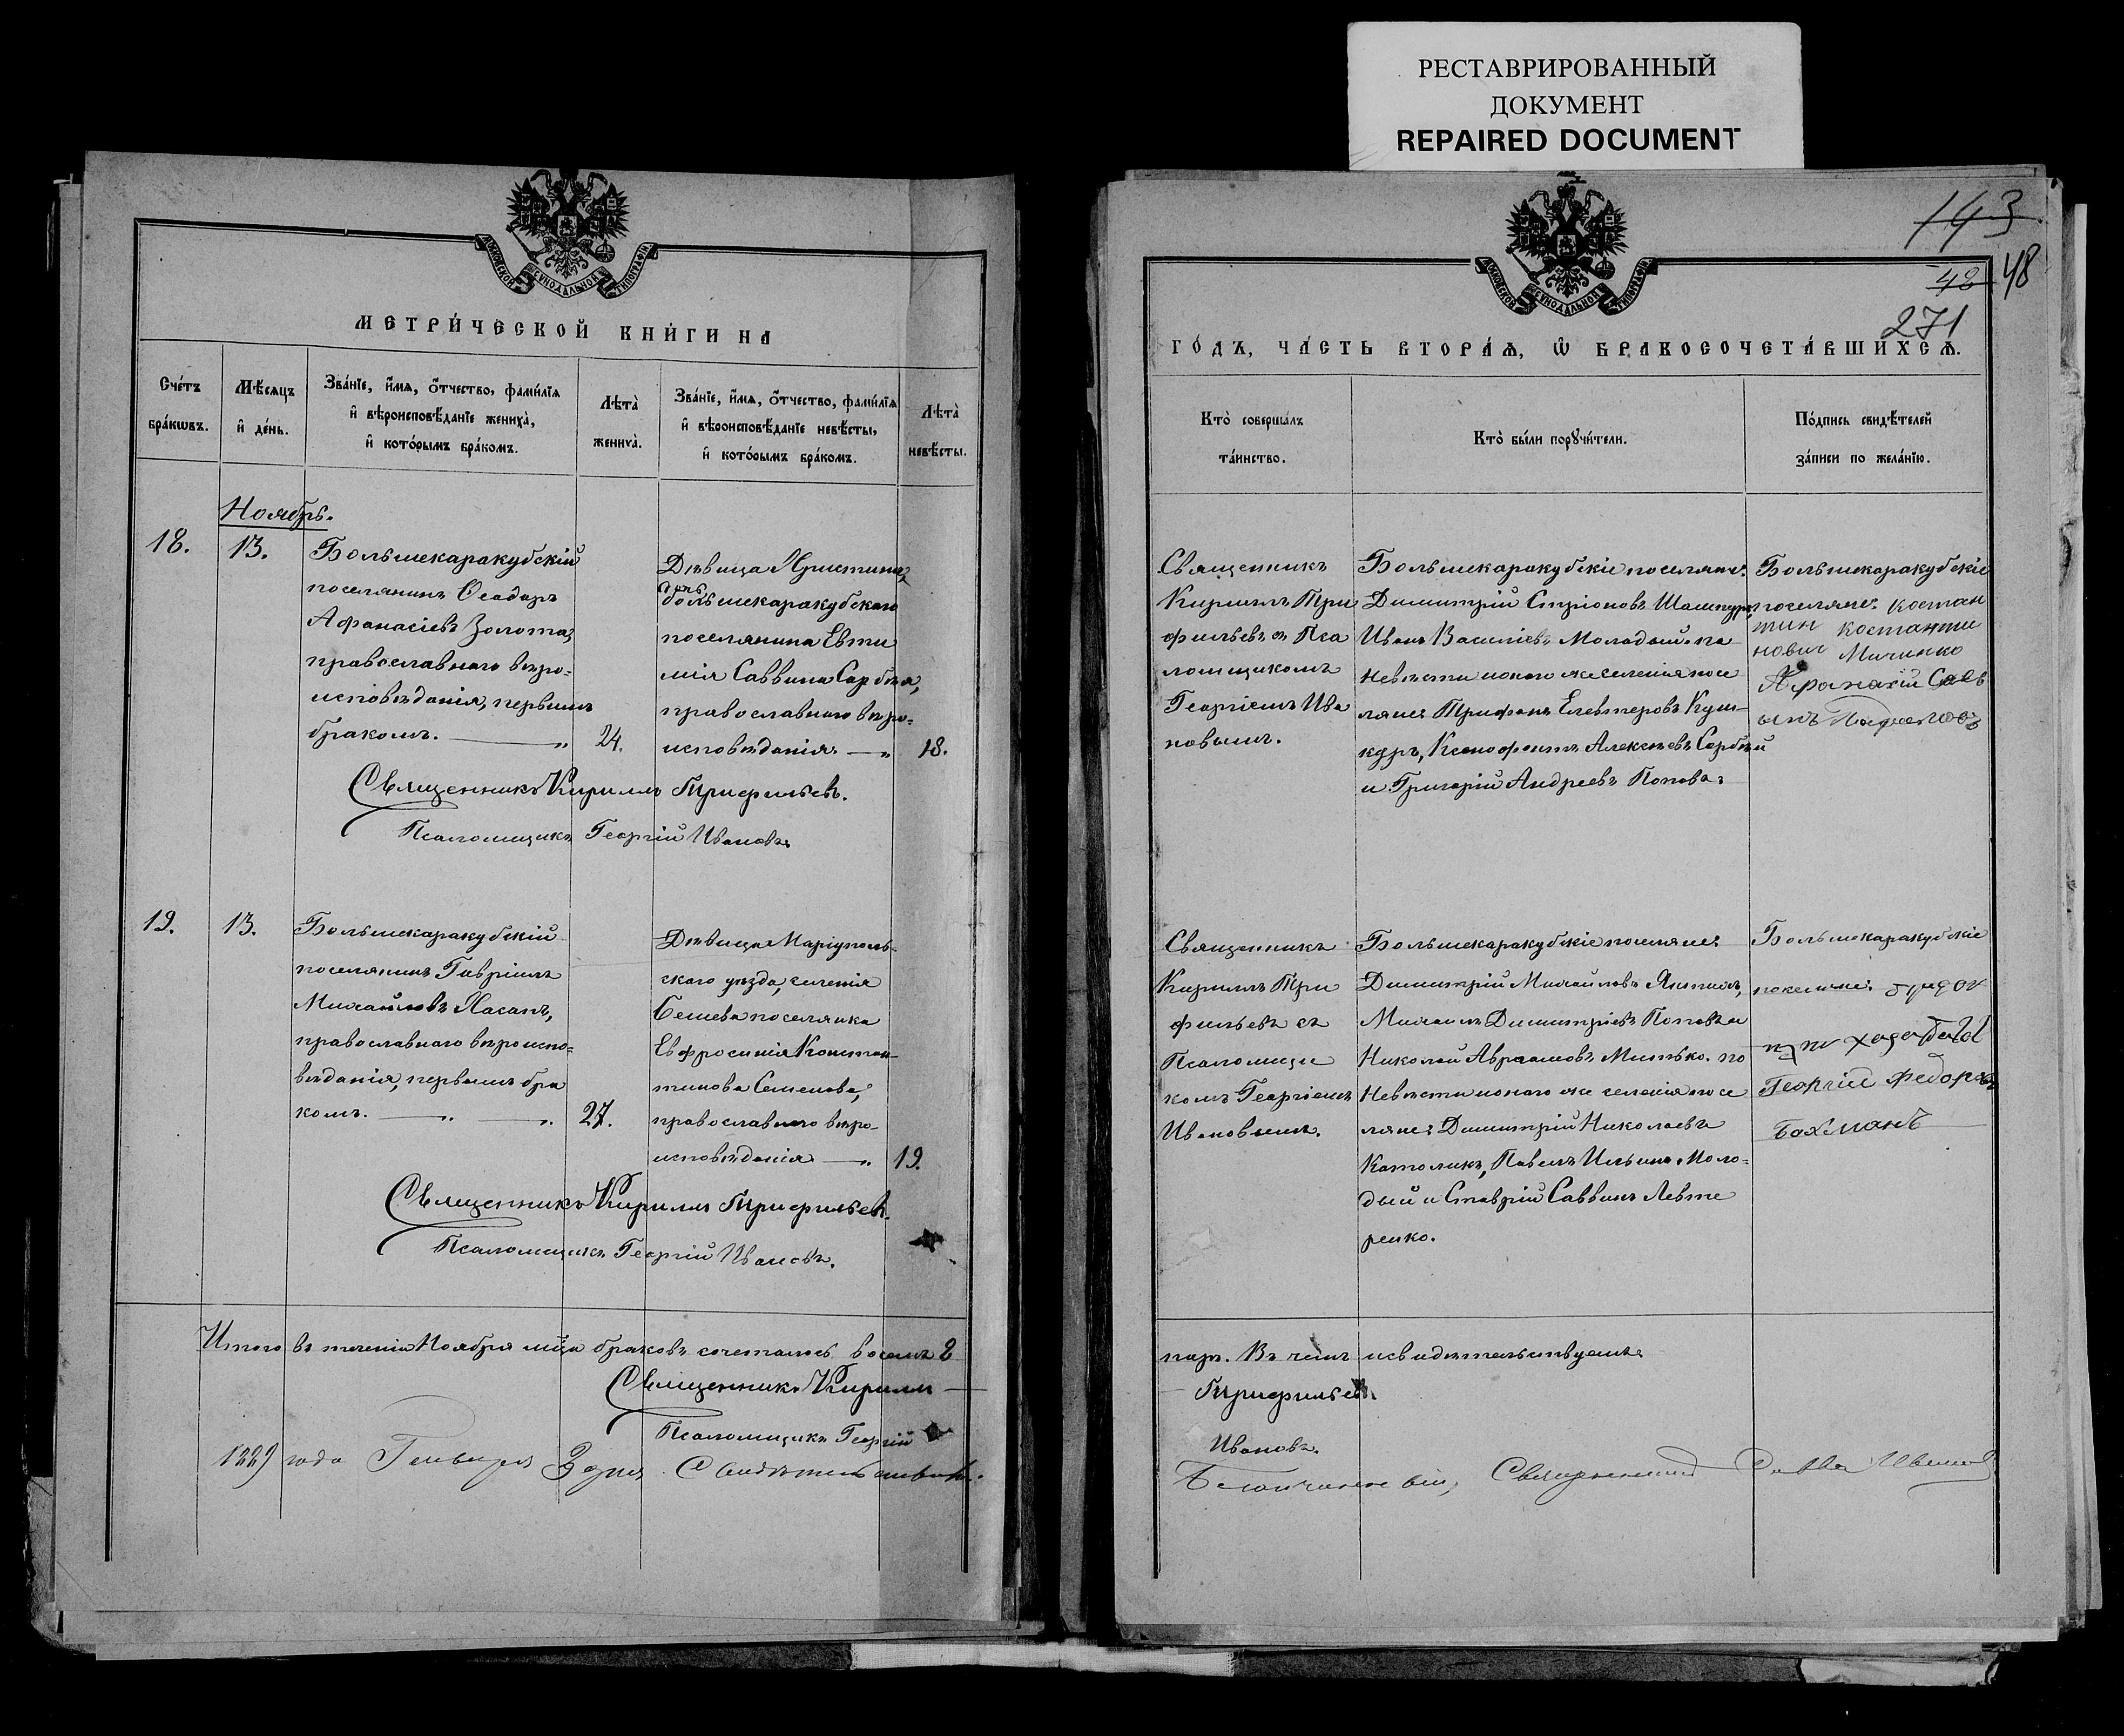 РЕСТАВРИРОВАННЫЙ
ДОКУМЕНТ
REPAIRED DOCUMENT
МОСКОВСКОЙ СУНОДАЛЬНОЙ ТИПОГРАФІИ
МЕТРИ́ЧЕСКОЙ КНИ́ГИ НА
Сче́тъ
бра́кѡвъ.
Мѣ́сяцъ
и҆ де́нь.
Зва́нїе, и҆́мѧ, ѻ҆́тчество, фами́лїѧ
и҆ вѣроисповѣ́данїе жениха̀,
и҆ кото́рымъ бра́комъ.
Лѣта̀
жениха̀.
Зва́нїе, и҆́мѧ, ѻ҆́тчество, фами́лїѧ
и҆ вѣроисповѣ́данїе невѣ́сты,
и҆ кото́рымъ бра́комъ.
Лѣта̀
невѣ́сты.
Ноябрь.
18.
13.
Большекаракубскій
поселянинъ Ѳеодоръ
Афанасіевъ Золота,
православнаго вѣро=
исповѣданія, первымъ
бракомъ. — „
24.
Дѣвица Христина,
дочь
большекаракубскаго
поселянина Евти
мія Саввина Сарбея,
православнаго вѣро=
исповѣданія — „
18.
Священникъ Кириллъ Трифильевъ.
Псаломщикъ Георгій Ивановъ.
19.
13.
Большекаракубскій
поселянинъ Гавріилъ
Михайловъ Хасапъ,
православнаго вѣроиспо=
вѣданія, первымъ бра
комъ. — „ — „
27.
Дѣвица Маріуполь-
скаго уѣзда, селенія
Бешева поселянка
Евфросинія Констан-
тинова Семенова,
православнаго вѣро-
исповѣданія — „
19.
Священникъ Кириллъ Трифильевъ.
Псаломщикъ Георгій Ивановъ.
Итого въ теченіи Ноября мѣсца браковъ сочеталось восемь 8
Священникъ Кириллъ —
Псаломщикъ Георгій
1889 года Генваря 3 дня Свидѣтельствовалъ
143
48 48
271
МОСКОВСКОЙ СУНОДАЛЬНОЙ ТИПОГРАФІИ
ГО́ДЪ, ЧА́СТЬ ВТОРА́Ѧ, Ѽ БРАКОСОЧЕТА́ВШИХСѦ.
Кто̀ соверша́лъ
та́инство.
Кто̀ бы́ли порꙋчи́тели.
По́дпись свидѣ́телей
за́писи по жела́нїю.
Священникъ
Кириллъ Три
фильевъ съ Пса
ломщикомъ
Георгіемъ Ива
новымъ.
Большекаракубскіе поселяне:
Димитрій Стріоновъ
Иванъ Василіевъ Молодый. по
невѣсти монаго же селенія посе
ляне: Трифонъ Елевтеровъ
Ксенофонтъ Алексѣевъ Сарбей
и Григорій Андреевъ Попова:
Большекаракубскіе
поселяне: костан
тин костанти
нович Мичинко
Афанасій Савв
инъ
Священникъ
Кириллъ Три
фильевъ съ
Псаломщи
комъ Георгіемъ
Ивановымъ.
Большекаракубскіе поселяне:
Димитрій Михайловъ
Михаилъ Димитріевъ Поповъ и
Николай Авраамовъ Митько. по
Невѣсти монаго же селенія посе
ляне: Димитрій Николаевъ
Католикъ, Павелъ Ильинъ Моло=
дый и Ставрій Саввинъ Левте
ренко.
Большекаракубскіе
поселяне:
Георгій Федоровъ
Бахманъ
паръ. Въ чемъ и свидѣтельствуемъ
Трифильевъ.
Ивановъ.
Благочинный, Священникъ Савва Ивановъ